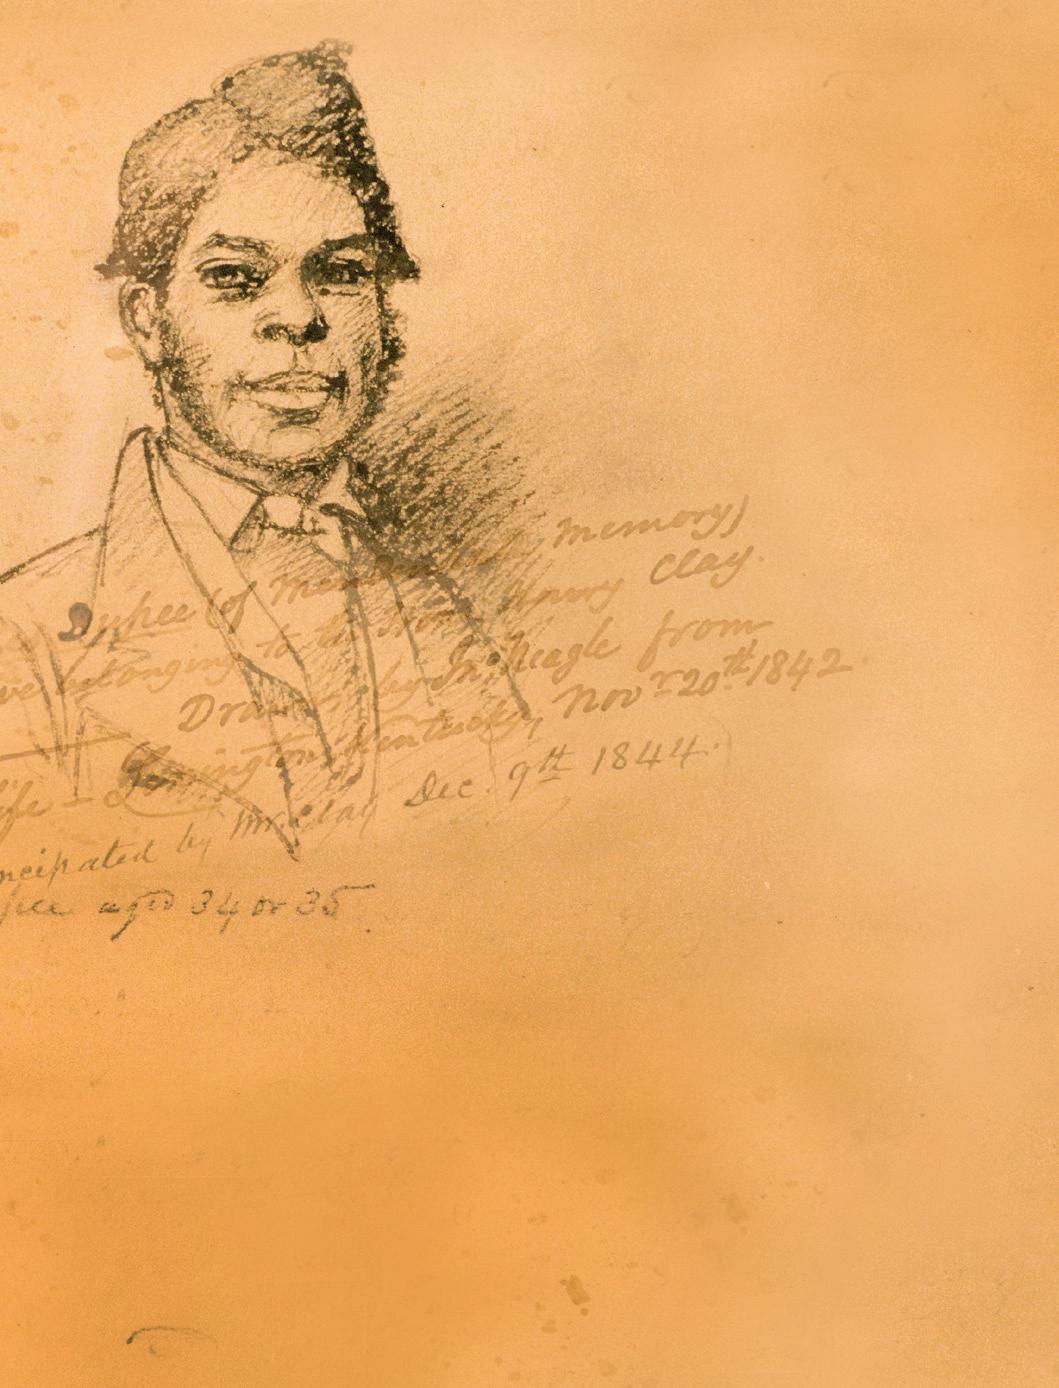 Dupee (of Memory)
ve belonging to the Hon: Henry Clay.
Drawn by Jn: Neagle from
ife - Lexington Kentucky, Novr 20th 1842
ncipated by Mr. Clay Dec. 9th 1844.
pee aged 34 or 35